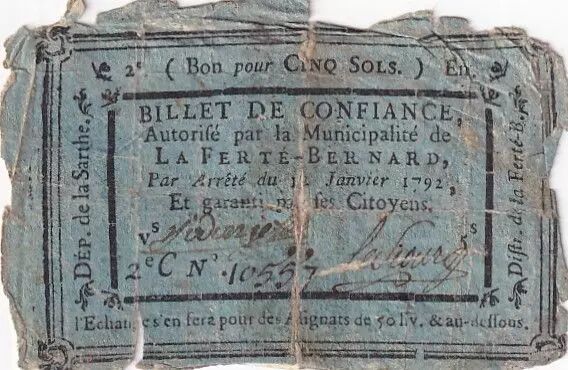 2e ( Bon pour CINQ SOLS. ) En.
BILLET DE CONFIANCE,
Autorisé par la Municipalité de
LA FERTÉ-BERNARD,
Par Arrêté du Janvier 1792,
Et garanti par ses Citoyens.
Vs s
2e C No 10557
l'Echange s'en fera pour des Assignats de 50 liv. & au-dessous.
DÉP. de la Sarthe.
Distr. de la Ferté-B.